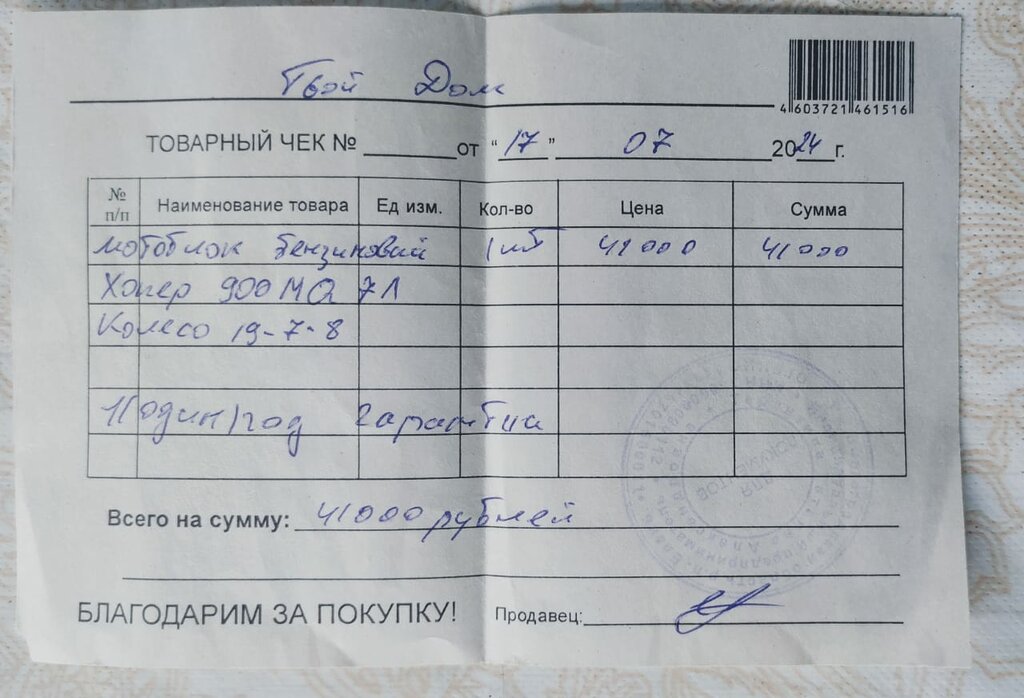 Твой Дом
4 603721 461516
ТОВАРНЫЙ ЧЕК № ______ от "17" 07 2024 г.
№ п/п Наименование товара Ед изм. Кол-во Цена Сумма
мотоблок бензиновый 1 шт 41000 41000
Хопер 900 MQ 7Л
Колесо 19-7-8
1(один) год гарантиа
Всего на сумму: 41000 рублей
БЛАГОДАРИМ ЗА ПОКУПКУ! Продавец:
ДЛЯ
ДОКУМЕНТОВ